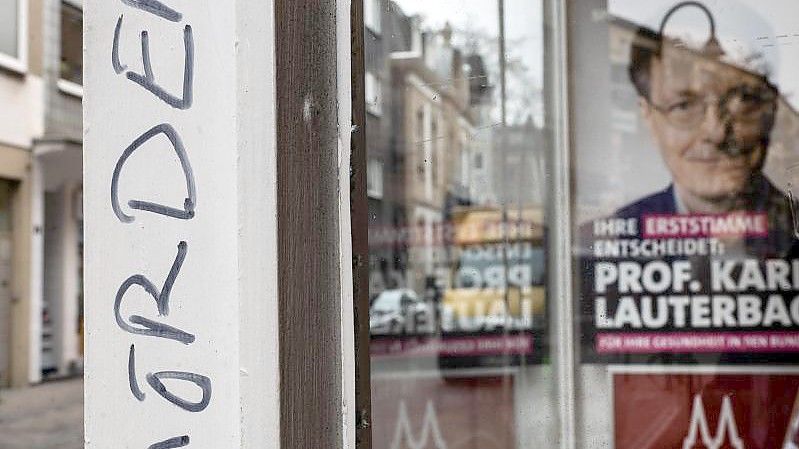 ÖRDE
IHRE ERSTSTIMME
ENTSCHEIDET:
PROF. KARL
LAUTERBAC
FÜR IHRE GESUNDHEIT IN DEN BUND